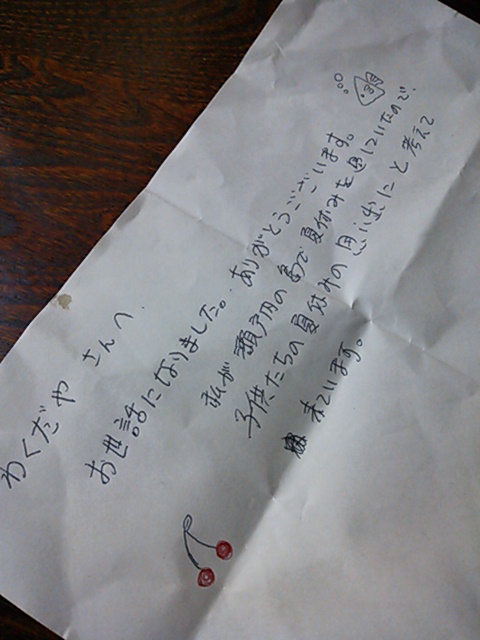 わくだや さんへ
お世話になりました。ありがとうございます。
私が瀬戸内の島で夏休みを過していたので、
子供たちの夏休みの思い出にと考えて
来ています。